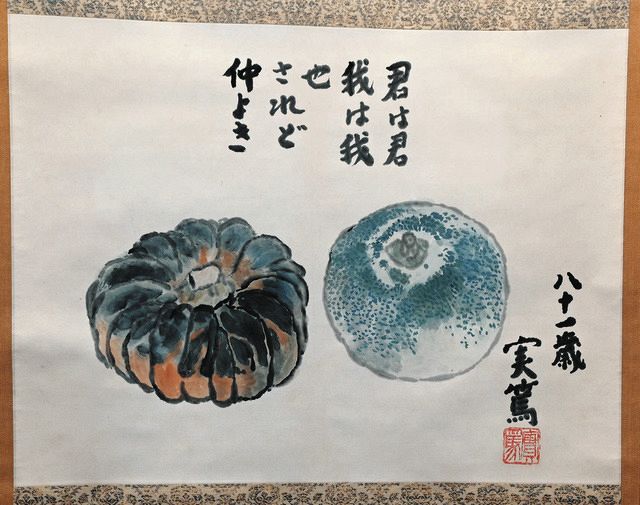 君は君
我は我
也
されど
仲よき
八十一歳
実篤
實篤